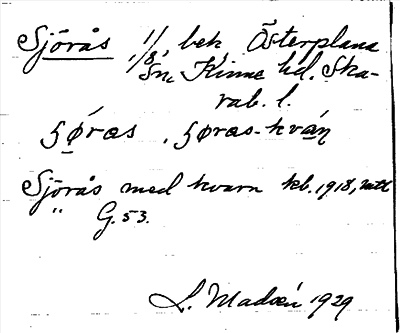 Sjörås 1/1, bek. Österplana
1/8, Sn, Kinne hd. Ska-
rab. l.
ʃøras, ʃøras-kván
Sjörås med kvarn kb. 1918,
" G. 53.
L. Madsén 1929